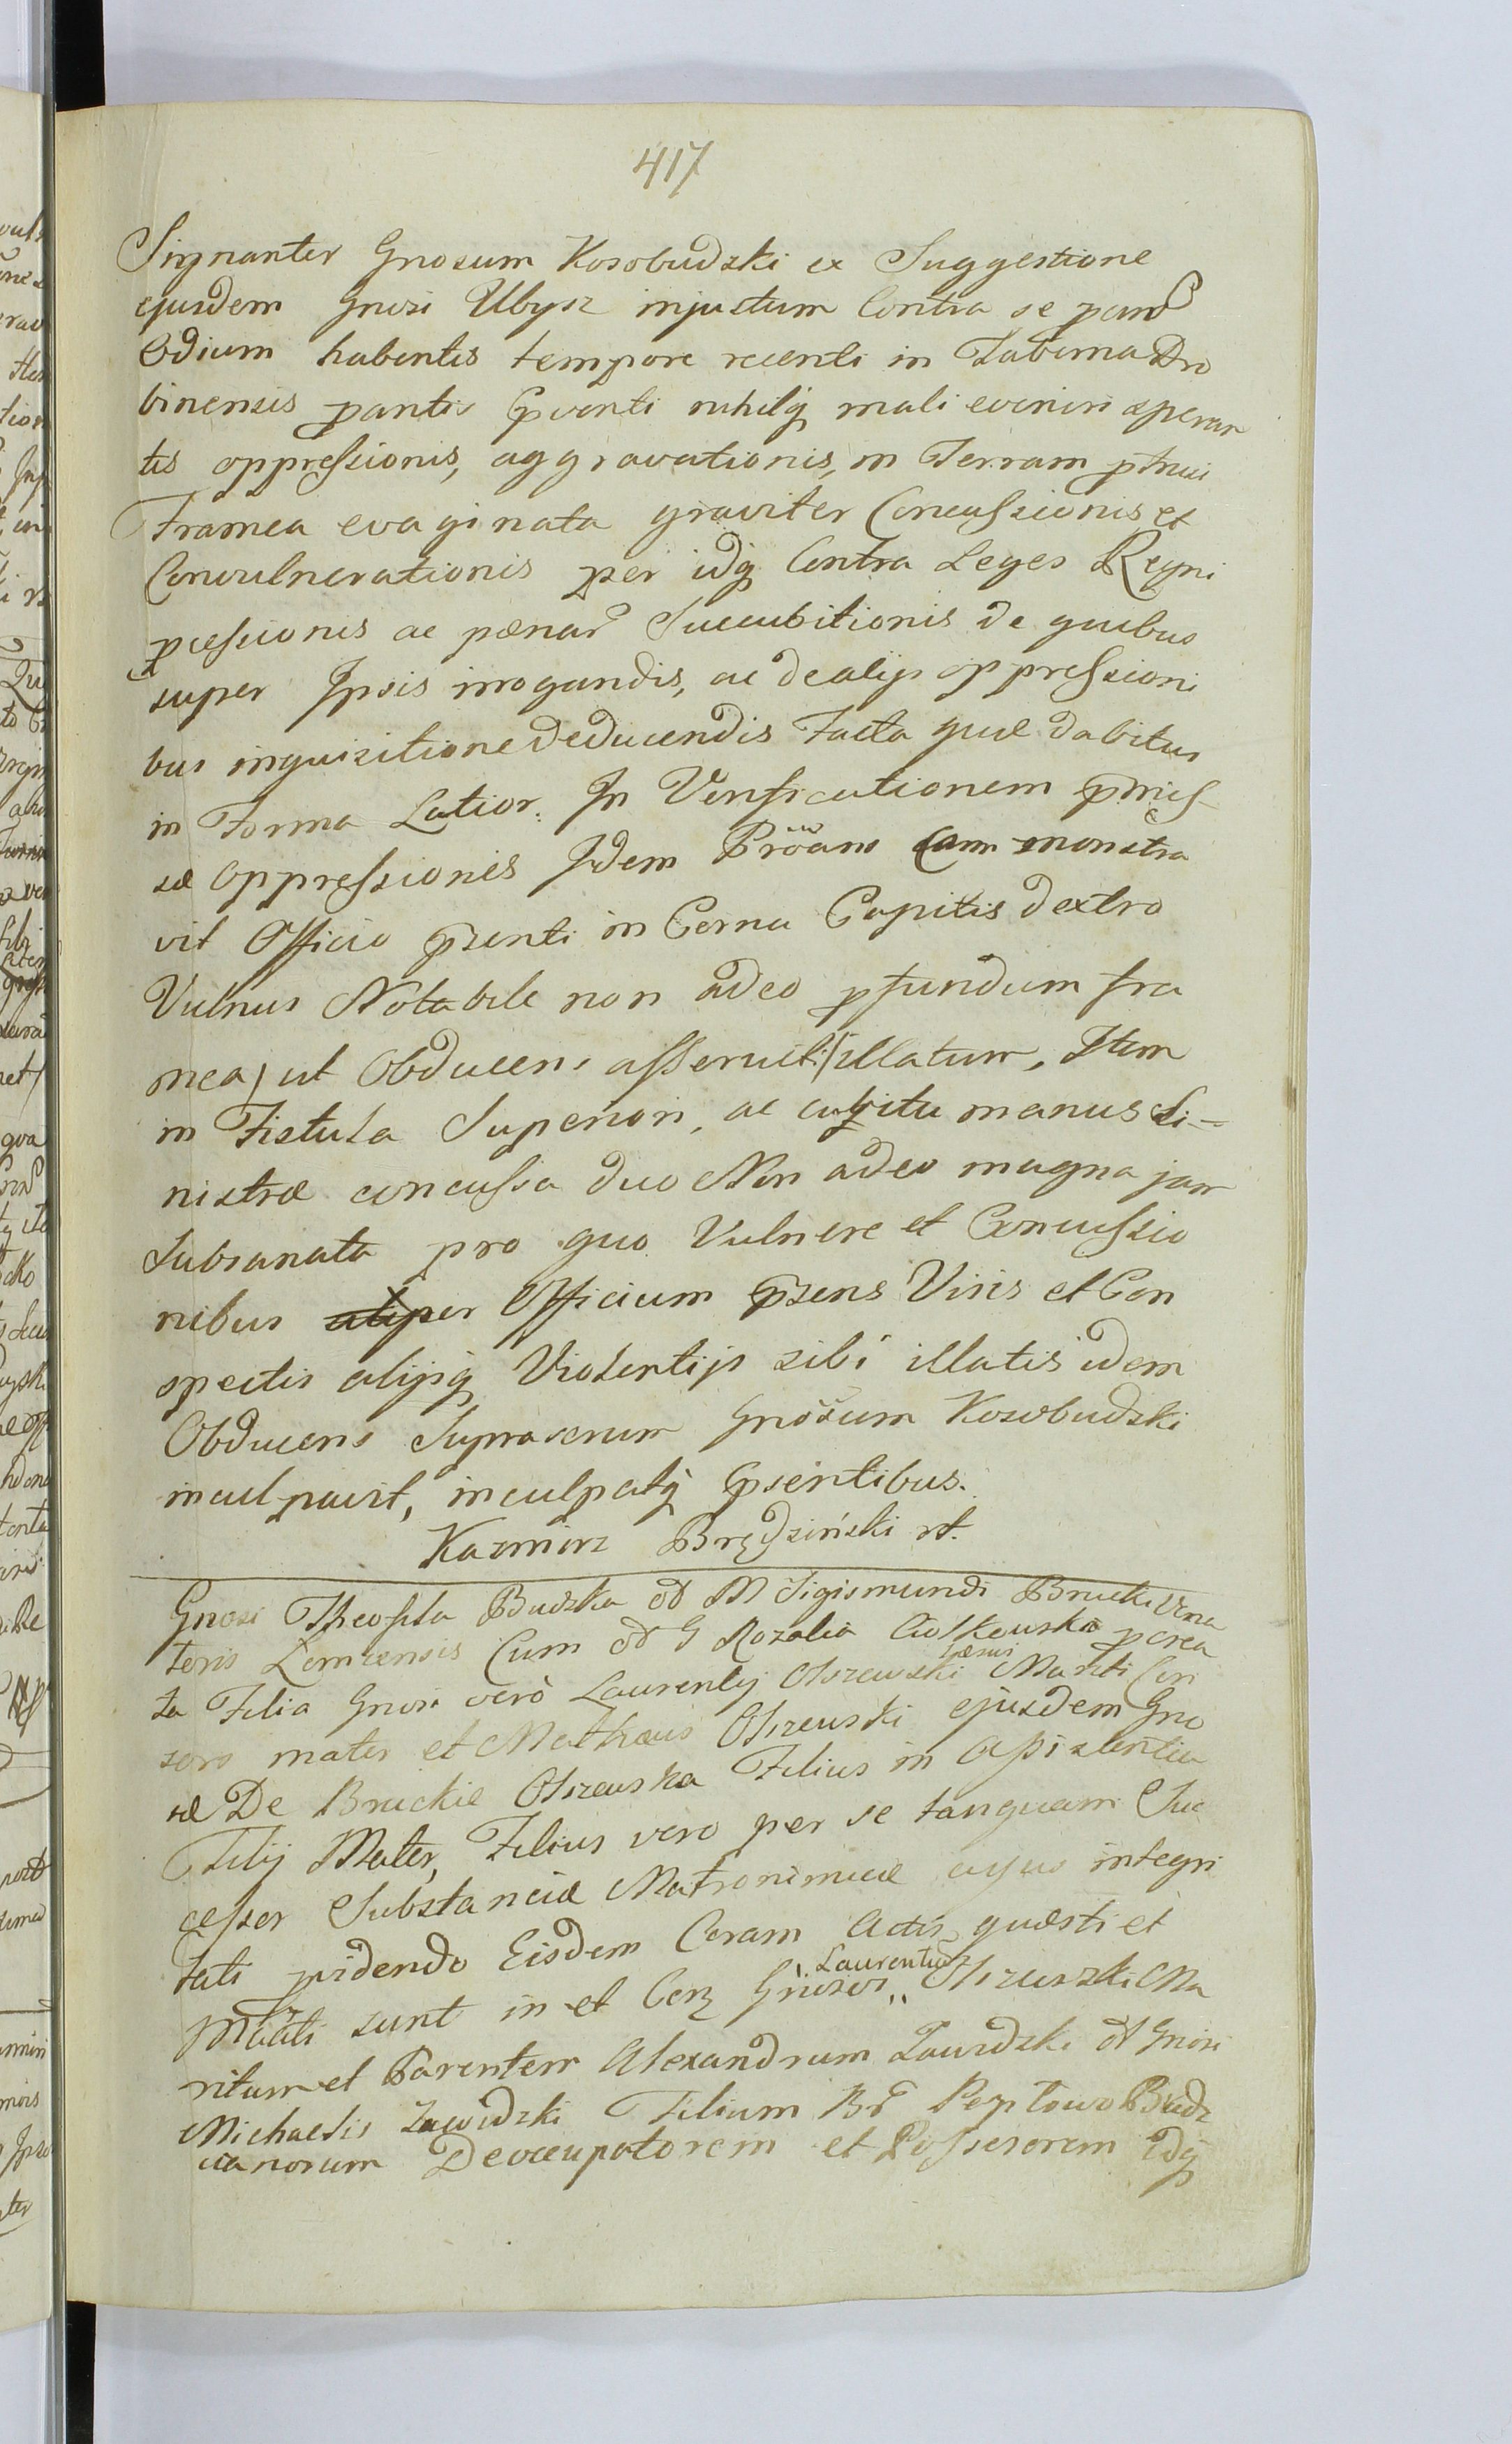 417
Signanter Gnosum Kosobudzki ex Suggestione
ejusdem Gnosi Ubysz injustum Contra se
Odium habentis tempore recenti in Taberna Dro
binensis nihilq mali eveniri speran
tis oppressionis, aggravationis, in Terram
Framea evaginata graviter Concussionis et
Convulnerationis per idq Contra Leges Regni
pcessionis ac pænar Succubitionis de quibus
super Ipsis irrogandis, ac de alijs oppressioni
bus inquisitione deducendis Facta quæ dabitur
in Forma Latior. In Verificationem
sæ Oppressionis Idem Com monstra
vit Officio pzenti in Cornu Capitis dextro
Vulnus Notabile non adeo pfundum fra
mea) ut Obducens asseruit illatum, Item
in Fistula Superiori, ac cubitu manus Si-
nistræ concussa duo Non adeo magna jam
Subsanata pro quo Vulnere et Concussio
nibus per Officium pzens Visis et Con
spectis alijsq Violentijs sibi illatis idem
Obducens Suprascrum Gnosum Kosobudzki
inculpavit, inculpatq psentibus.
Kazmirz Brędziński rt.
Gnosi Theofila Budzka Sigismundi Brucki Vena
toris Lomzensis Cum Rozalia Ciołkowska pcrea
ta Filia Gnosi verò Laurentij Olszewski Mariti Con
sors mater et Mathæus Olszewski ejusdem Gno
sæ De Bruckie Olszewska Filius in Assistentia
Filij Mater, Filius vero per se tanquam Suc
cessor Substanciæ Matronimicæ cujus integri
tati pvidendo Eisdem Coram Actis questi et
sunt in et Laurentium Olszewski Ma
ritum et Parentem Alexandrum Zawidzki Gnosi
Michaelis Zawidzki Filium Br Peptowo Budz
canorum Deoccupatorem et Possesorem idq